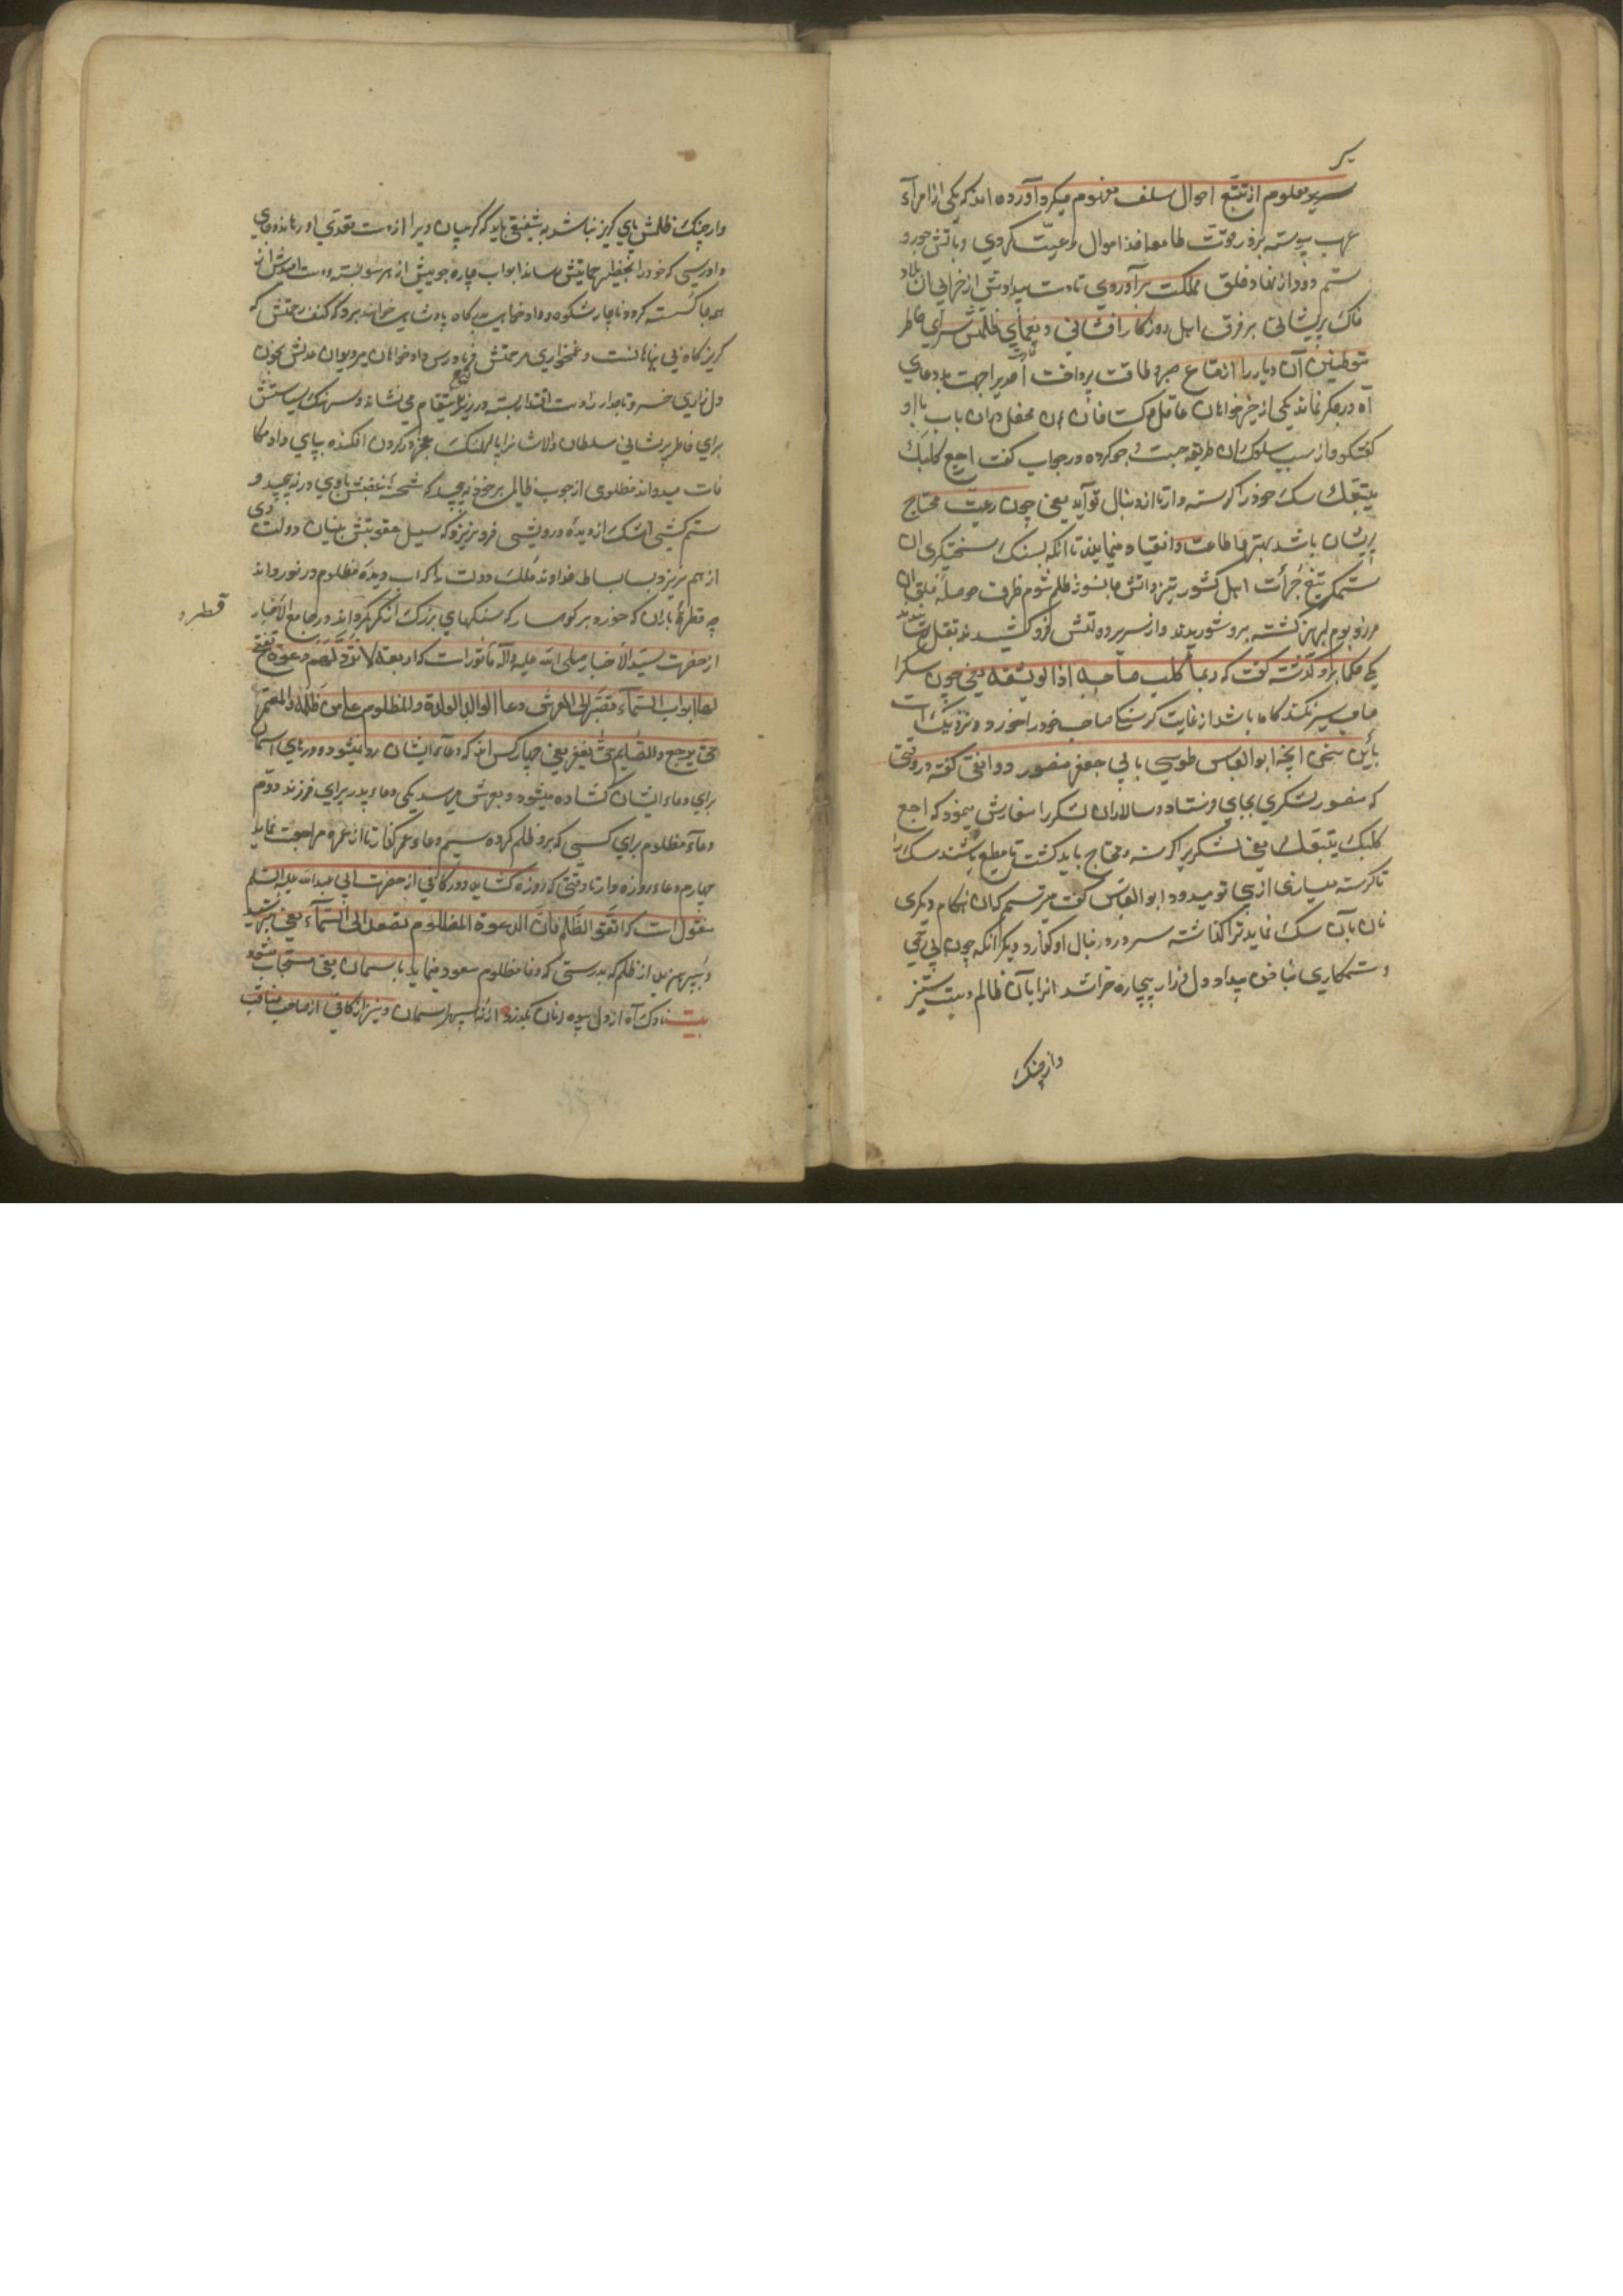 یر
معلوم از تتبع احوال سلف مفهوم میکردد آورده اند که یکی از امرآء
عرب پیوسته بزور و قوت طامعه اخذ اموال رعیت کردی و باتش جور و
ستم دود از نهاد خلق مملکت برآوردی تا دست بیدادش از خرابی آن بلاد
خاک پریشانی بر فرق اهل روزکار افشانی و یغمای ظلمش سرای خاطر
متوطنین آن دیار را از متاع صبر و طاقت پرداخت
آه در جکر نماند یکی از خیرخواهان عاقل و کستاخان آن محفل در آن باب با او
کفتکو و از سبب سلوک آن طریقه جست و جو کرده در جواب کفت اجع کلبک
یتبعک سک خود را کرسنه دار تا از دنبال تو آید یعنی چون رعیت محتاج
پریشان باشد بهتر اطاعت و انقیاد مینمایند تا آنکه بسنک ستمکری آن
ستمکر تیغ جرأت اهل کشور تیز و آتش جانسوز ظلم شوم ظرف حوصله خلق آن
مرز و بوم لبریز کشته برو شوریدند و از سریر دولتش فرو کشیده بقتل رسانیدند
یکی از حکما برو کذشته کفت که ربما اکل الکلب صاحبه اذا لم یشبعه یعنی چون سک را
صاحب سیر نکند کاه باشد از غایت کرسنکی صاحب خود را خورد و نزدیک است
باین سخن آنچه ابو العباس طوسی بابی جعفر منصور دوانقی کفته در وقتی
که منصور لشکری بجایی فرستاد و سالاران لشکر را سفارش مینمود که اجع
کلبک یتبعک یعنی لشکر را کرسنه و محتاج باید داشت تا مطیع باشند سک را
تا کرسنه میسازی از پی تو میدود ابو العباس کفت میترسم که آن هنکام دیکری
نان بآن سک نماید ترا کذاشته سر در دنبال او کذارد و دیکر آنکه چون بی رحمی
و ستمکاری بناخن بیداد دل زار بیچاره خراشد انرا با آن ظالم دست ستیز
دار چنک
وار چنک ظلمش پای کریز نباشد به شفیقی باید که کریبان ویرا از دست تعدی او رهاند و جای
دادرسی که خود را بحیطه حمایتش رساند ابواب چاره جوییش از هر سو بسته و دست امیدش از
همه جا کسسته کردد ناچار شکوه و دادخواهی بدرکاه پادشاهی خواهد برد که کنف رحمتش
کریزکاه بی پناهانست و غمخواری مرحمتش فریادرس دادخواهان
دل زاری خسرو تاجدار را دست اقتدار بسته در زیر تیغ انتقام می نشاند و سرهنک سیاستش
برای خاطر پریشانی سلطان والاشانرا پالهنک عجز در کردن افکنده بپای داد مکا
فات میدواند مظلومی از چوب ظالمی بر خود نه پیچید که شحنه غضبش
ستم کیشی اشک از دیده درویشی فرو نریزد که سیل عقوبتش بنیان دولت وی
از هم نریزد بسا بساط خداوند ملک دولت را که آب دیده مظلوم در نورداند
چه قطرهٔ باران که خورد بر کوهسار که سنکهای بزرک از کمر کرداند در جامع الاخبار
قطره
از حضرت سید الاخیار صلی الله علیه و آله مأثور است که اربعة لا ترد لهم دعوة تفتح
لها ابواب السماء و تصیر الی العرش دعاء الوالد لولده و المظلوم علی من ظلمه و المعتمر
حتی یرجع و الصایم حتی یفطر یعنی چهار کس اند که دعاء ایشان رد نمیشود و درهای آسمان
برای دعاء ایشان کشاده میشود و بعرش میرسد یکی دعاء پدر برای فرزند دوم
دعاء مظلوم برای کسی که برو ظلم کرده سیم دعاء عمره کذار تا از عمره مراجعت نماید
چهارم دعاء روزه دار تا وقتی که روزه کشاید و در کافی از حضرت ابی عبدالله علیه السلم
منقول است که اتقوا الظلم فان الدعوة المظلوم تصعد الی السماء یعنی بترسید
و بپرهیزید از ظلم که بدرستی که دعا مظلوم صعود مینماید باسمان یعنی مستجاب میشود
بیت ناوک آه از دل